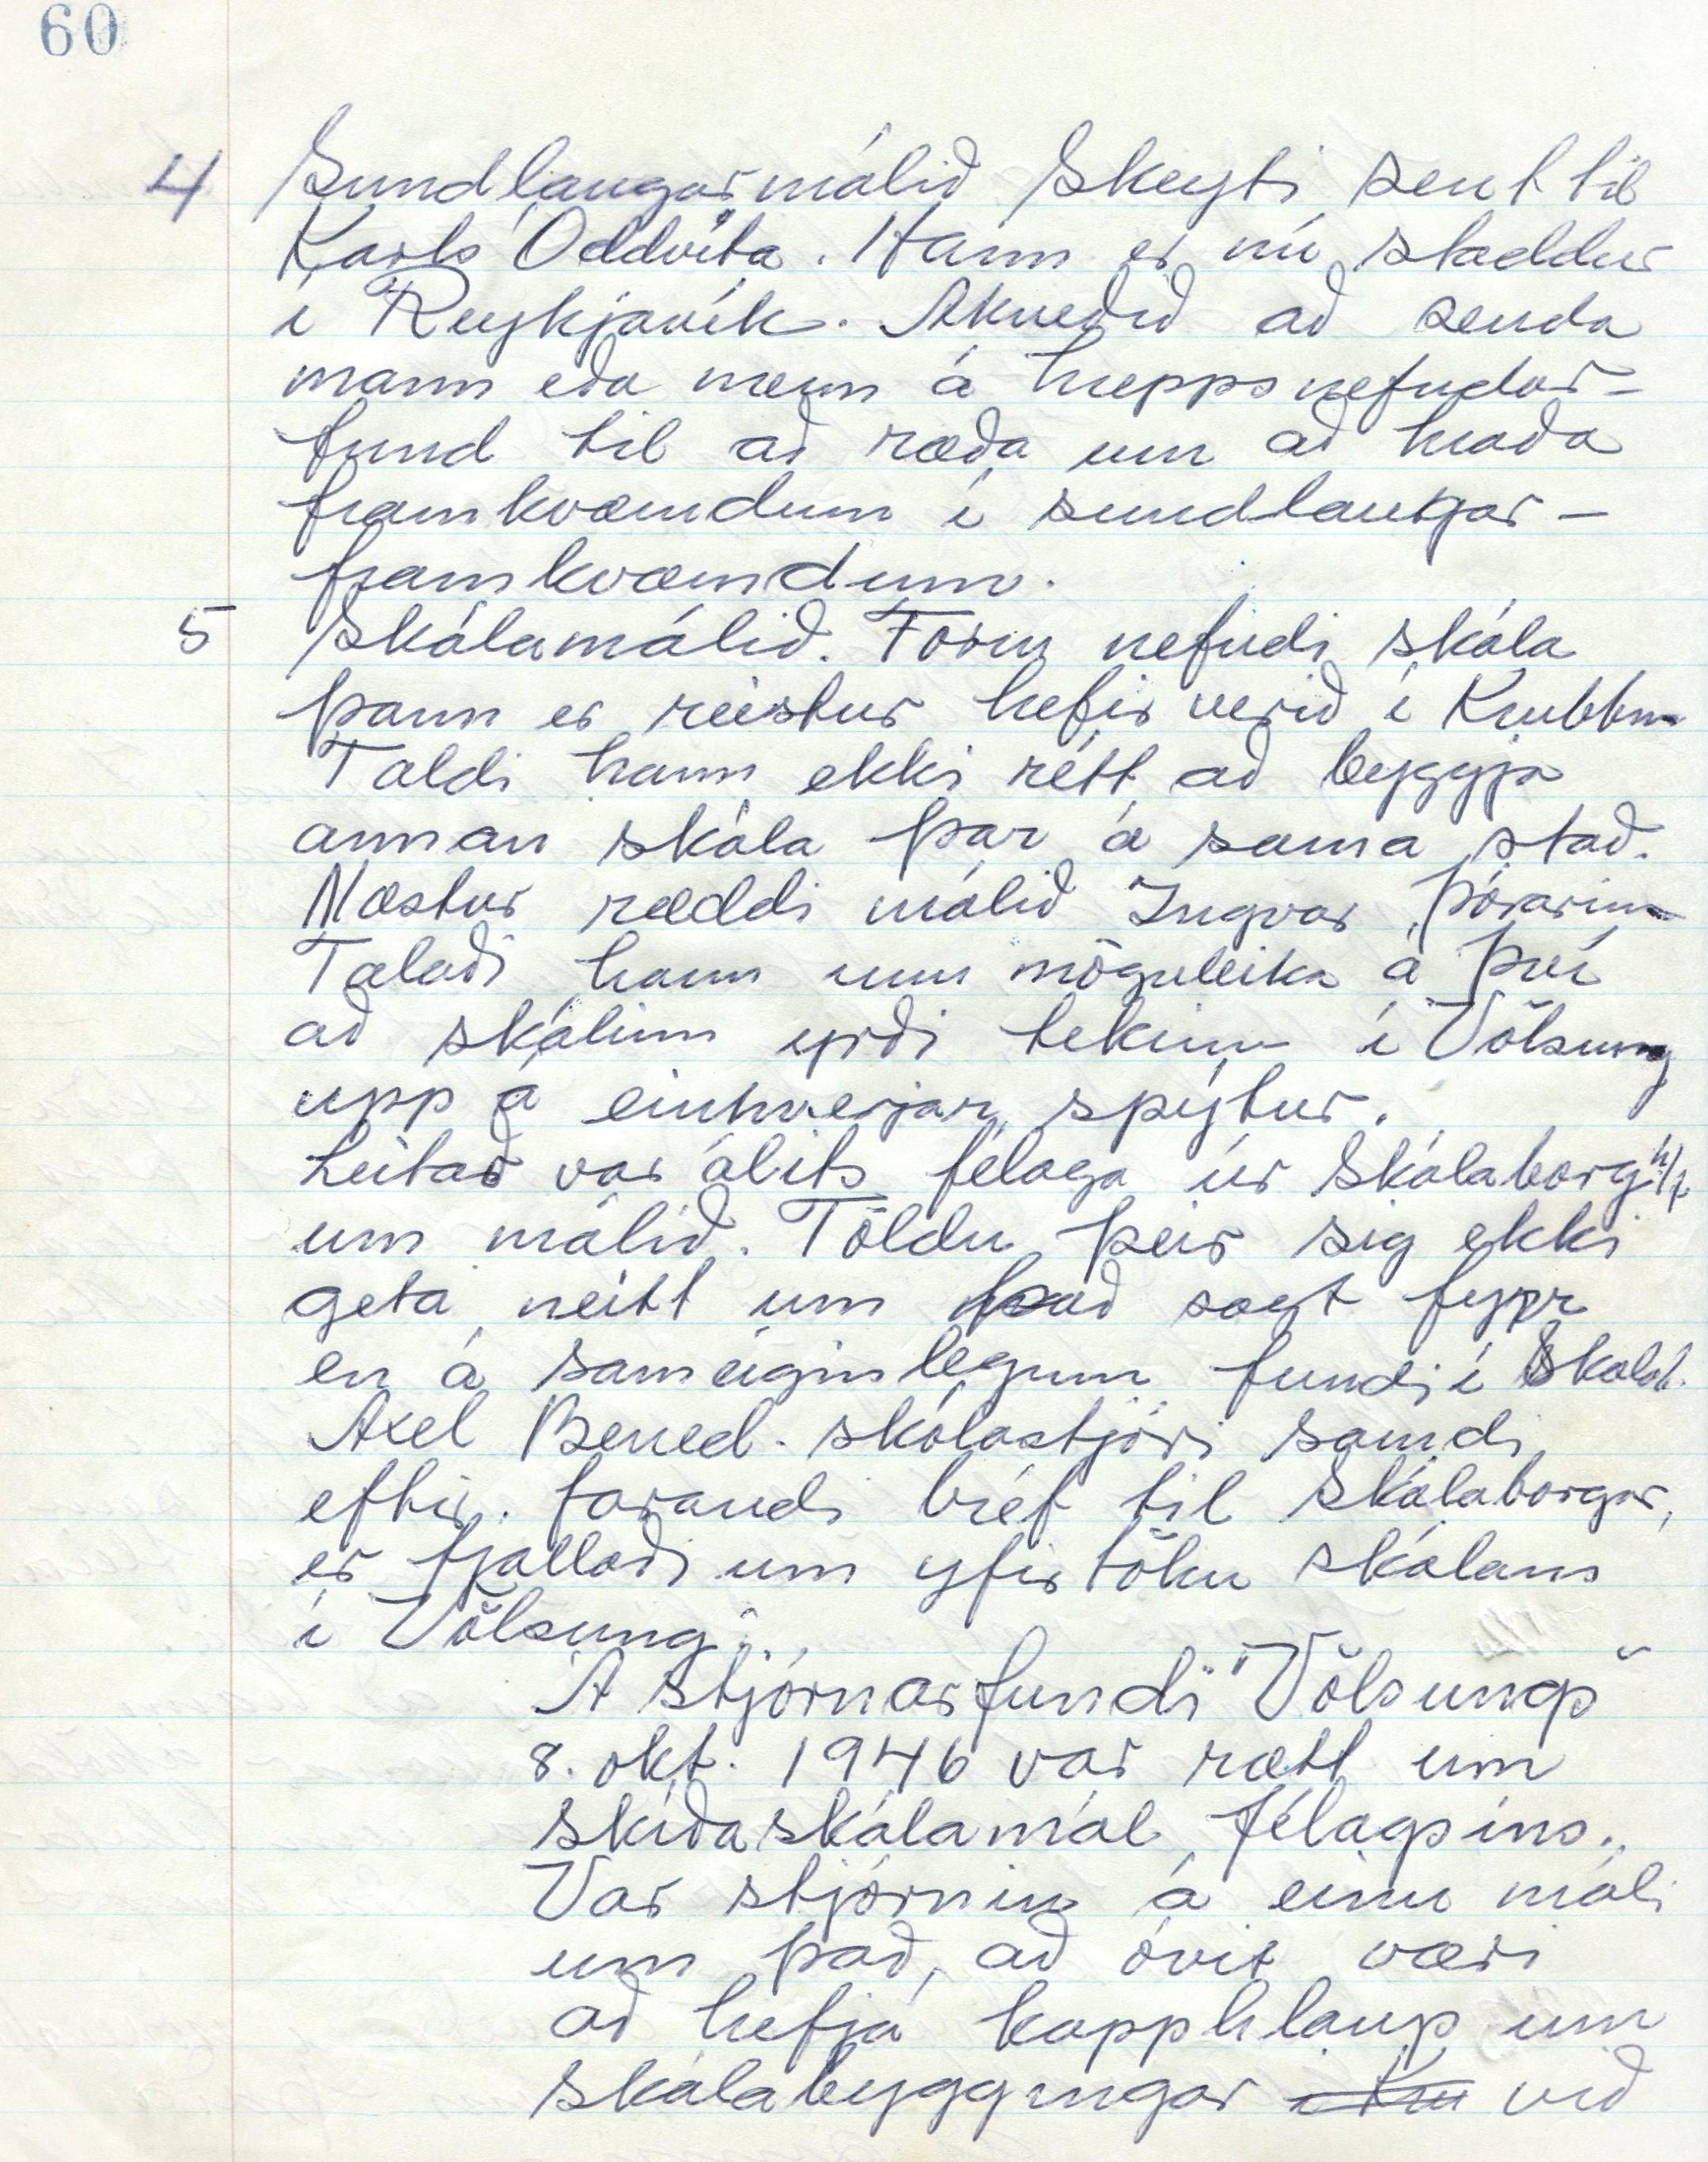 60
4 Sundlaugarmálið Skeyti sent til
Karls Oddvita. Hann er nú staddur
í Reykjavík. Akveðið að senda
mann eða menn á hreppsnefndar-
fund til að ræða um að hraða
framkvæmdum í sundlaugar-
framkvæmdum.
5 Skálamálið. Form nefndi skála
þann er reistur hefir verið í Krubbnum
Taldi hann ekki rétt að byggja
annan skála þar á sama stað.
Næstur ræddi málið Ingvar Þórarins
Talaði hann um möguleika á því
að skálinn yrði tekinn í Völsung
upp á einhverjar spýtur.
Leitað var álits félaga úr Skálaborg h/f
um málið. Töldu þeir sig ekki
geta neitt um það sagt fyrr
en á sameiginlegum fundi í Skálab.
Axel Bened. skólastjóri samdi
eftir. farandi bréf til Skálaborgar,
er fjallaði um yfirtöku skálans
í Völsung:
Á stjórnarfundi "Völsungs"
8. okt. 1946 var rætt um
skíðaskálamál félagsins.
Var stjórnin á einu máli
um það, að óvit væri
að hefja kapphlaup um
skálabyggingar í Kru við